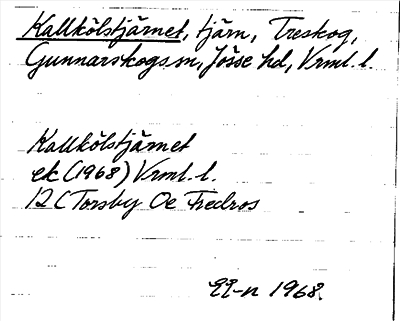 Kallkölstjärnet, tjärn, Treskog,
Gunnarskogs sn, Jösse hd, Vrml. l.
Kallkölstjärnet
ek (1968) Vrml. l.
12 C Torsby Oe Fredros
1968.